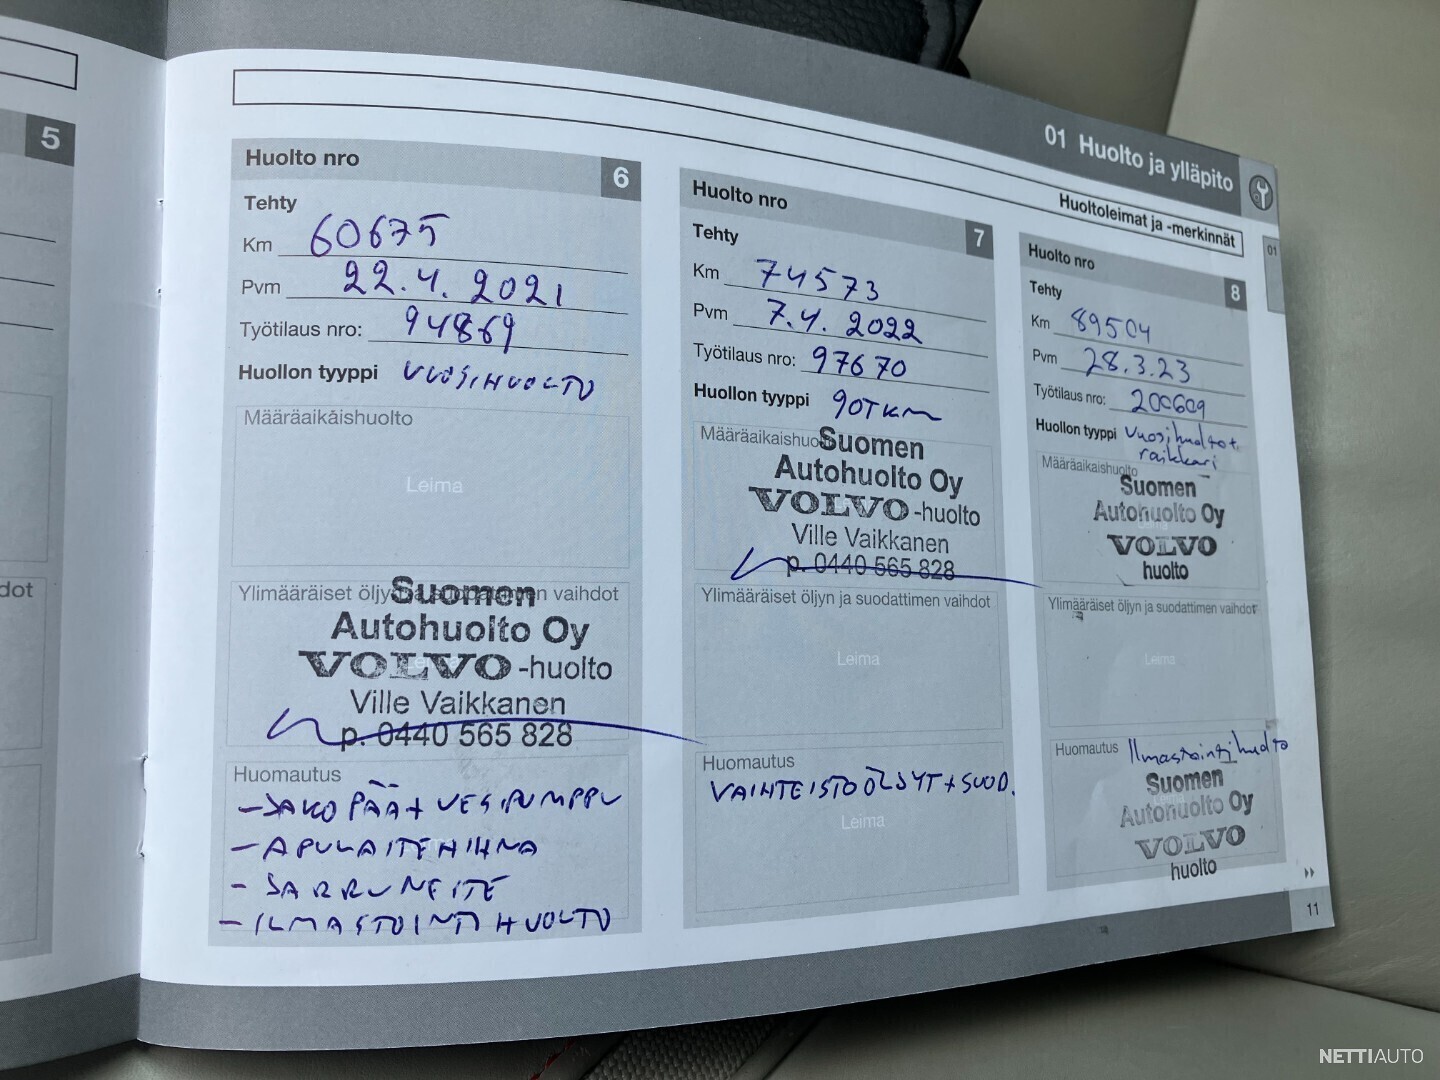 5
dot
01 Huolto ja ylläpito
Huoltoleimat ja -merkinnät
01
Huolto nro
6
Tehty
Km 60675
Pvm 22.4.2021
Työtilaus nro: 94869
Huollon tyyppi VUOSIHUOLTO
Määräaikaishuolto
Leima
Ylimääräiset öljyn ja suodattimen vaihdot
Leima
Suomen
Autohuolto Oy
VOLVO-huolto
Ville Vaikkanen
p. 0440 565 828
Huomautus
-JAKOPÄÄ+VESIPUMPPU
-APULAITEHIHNA
-JARRUNESTE
-ILMASTOINTIHUOLTO
Huolto nro
7
Tehty
Km 74573
Pvm 7.4.2022
Työtilaus nro: 97670
Huollon tyyppi 90TKM
Määräaikaishuolto
Suomen
Autohuolto Oy
VOLVO-huolto
Ville Vaikkanen
p. 0440 565 828
Ylimääräiset öljyn ja suodattimen vaihdot
Leima
Huomautus
VAIHTEISTOÖLJYT+SUOD.
Leima
Huolto nro
8
Tehty
Km 89504
Pvm 28.3.23
Työtilaus nro: 200609
Huollon tyyppi Vuosihuolto+
raikkari
Määräaikaishuolto
Leima
Suomen
Autohuolto Oy
VOLVO
huolto
Ylimääräiset öljyn ja suodattimen vaihdot
Leima
Huomautus Ilmastointihuolto
Suomen
Autohuolto Oy
VOLVO
huolto
11
NETTIAUTO